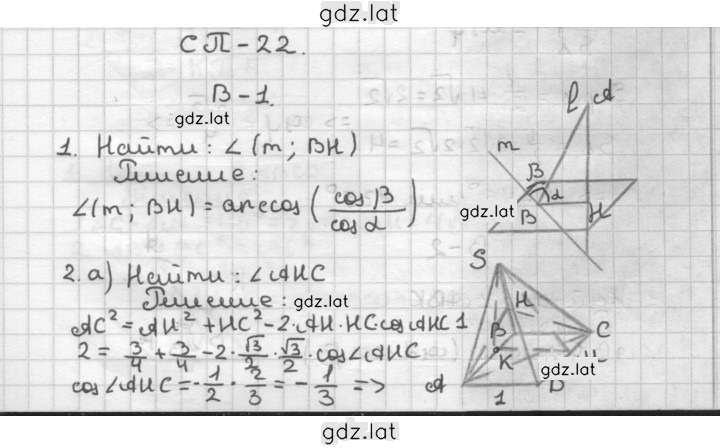 gdz.lat
СП-22.
В-1.
gdz.lat
1. Найти: ∠(m; BH)
Решение:
∠(m; BH) = arccos (cosβ / cosα)
gdz.lat
2. а) Найти: ∠AHC
Решение: gdz.lat
AC² = AH² + HC² - 2·AH·HC·cosAHC
2 = 3/4 + 3/4 - 2·√3/2·√3/2·cos∠AHC
cos∠AHC = -1/2 · 2/3 = -1/3 =>
l A
m
B
α
B H
S
H
B
C
K
gdz.lat
A D
1
1
gdz.lat